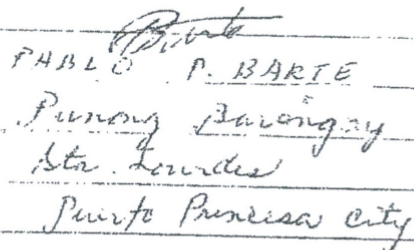 PABLO P. BARTE
Punong Barangay
Sta. Lourdes
Puerto Princesa City